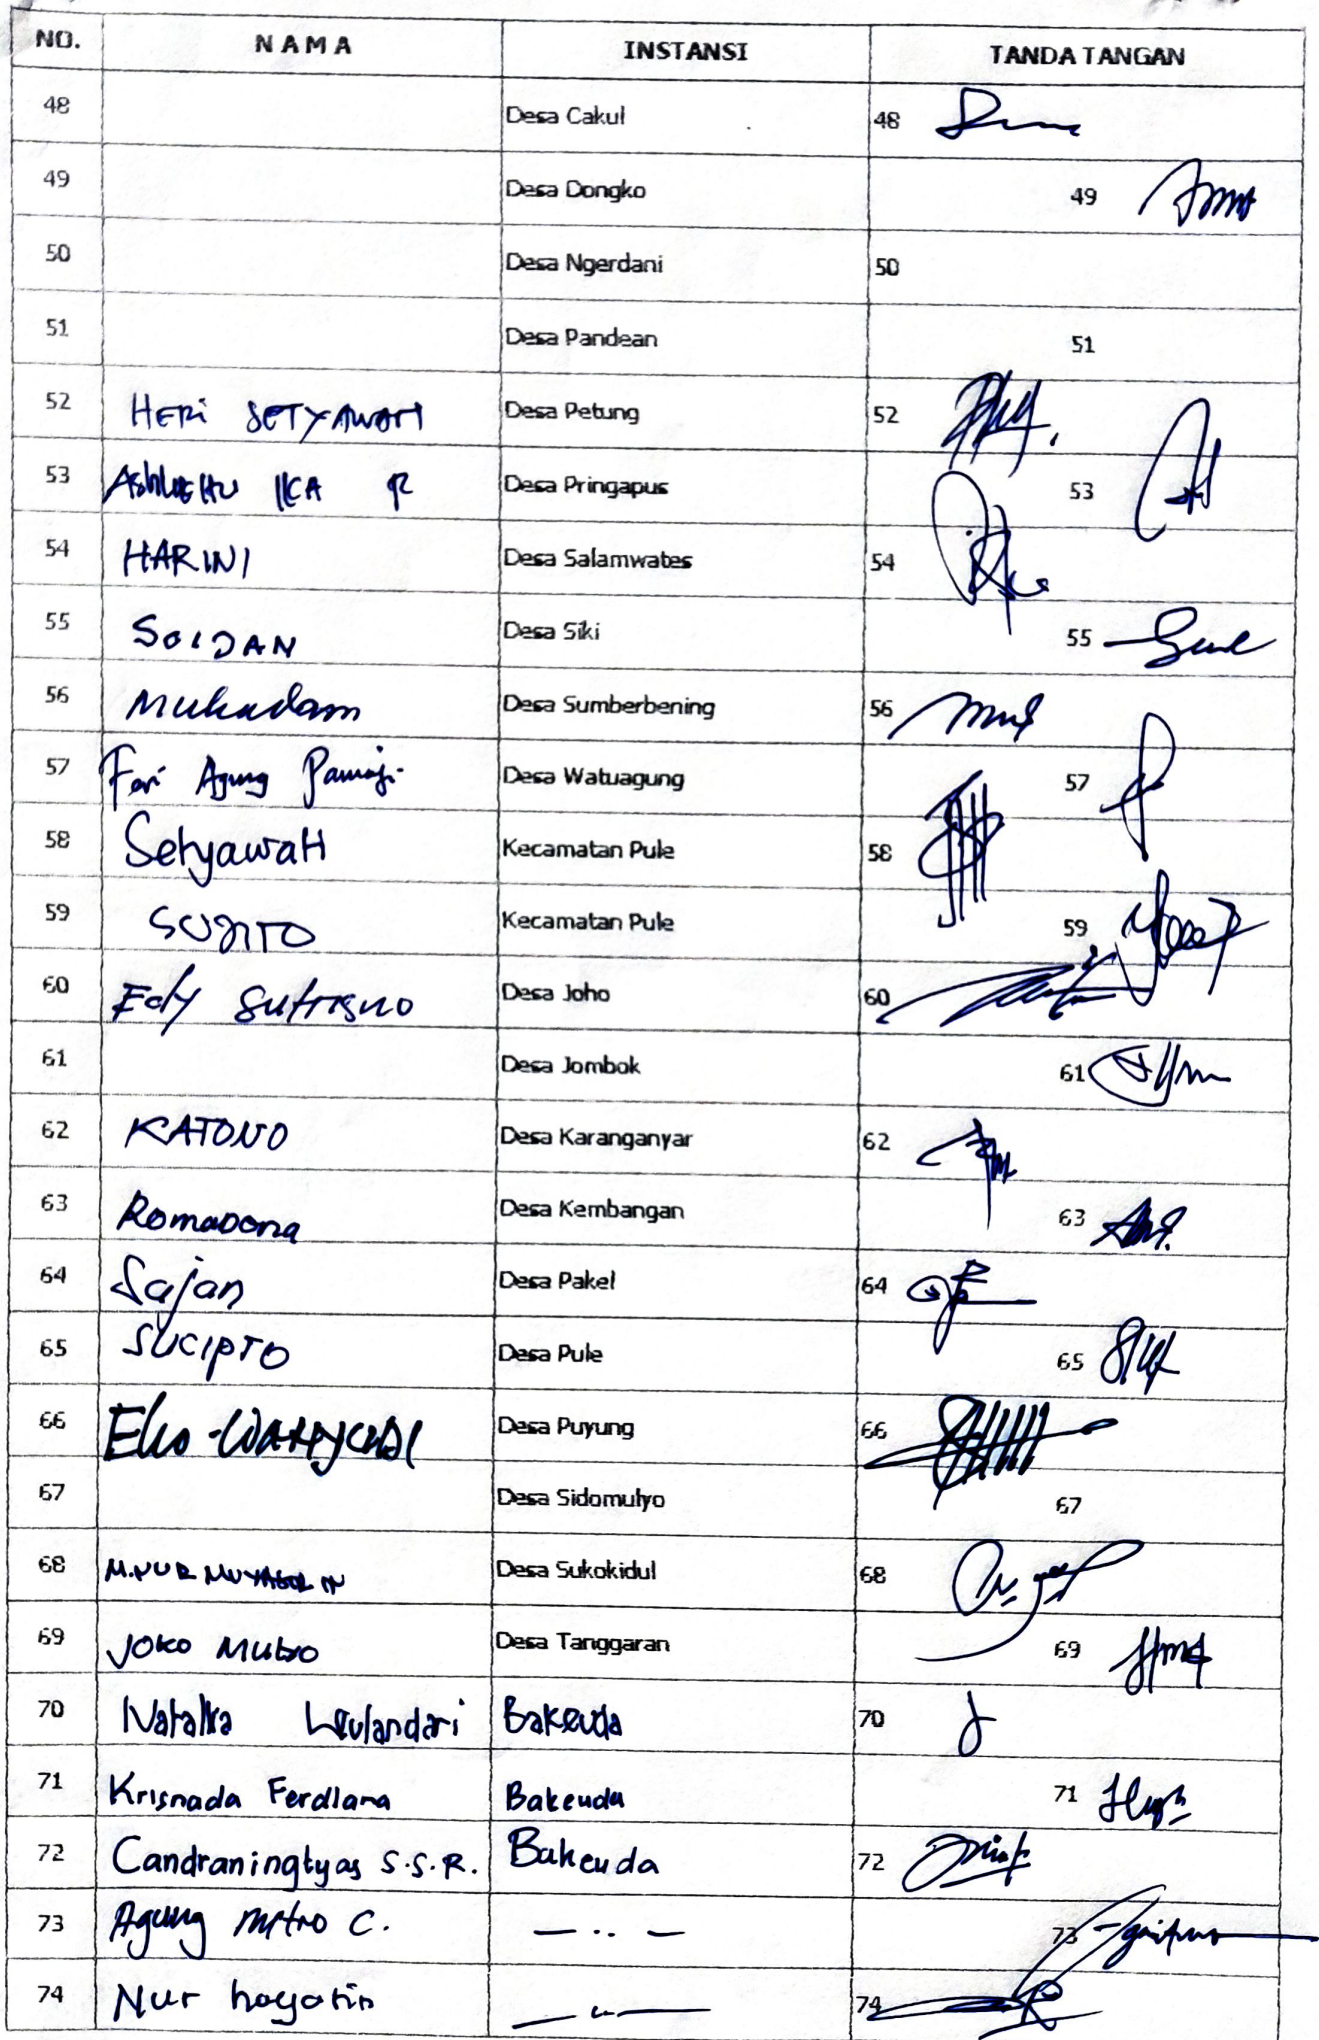 NO. NAMA INSTANSI TANDA TANGAN
48 Desa Cakul 48
49 Desa Dongko 49
50 Desa Ngerdani 50
51 Desa Pandean 51
52 HERI SETYAWAN Desa Petung 52
53 IKA R Desa Pringapus 53
54 HARINI Desa Salamwates 54
55 SOIDAN Desa Siki 55
56 Mukadam Desa Sumberbening 56
57 Feri Agung Pamuji Desa Watuagung 57
58 Setyawati Kecamatan Pule 58
59 SUJITO Kecamatan Pule 59
60 Edy Sutrisno Desa Joho 60
61 Desa Jombok 61
62 KATONO Desa Karanganyar 62
63 Romadona Desa Kembangan 63
64 Sajan Desa Pakel 64
65 SUCIPTO Desa Pule 65
66 Eko WAHYUDI Desa Puyung 66
67 Desa Sidomulyo 67
68 M. NUR Desa Sukokidul 68
69 JOKO Desa Tanggaran 69
70 Natalka Wulandari Bakeuda 70
71 Krisnada Ferdiana Bakeuda 71
72 Candraningtyas S.S.R. Bakeuda 72
73 Agung Mitro C. — .. — 73
74 Nur hayatin — " — 74